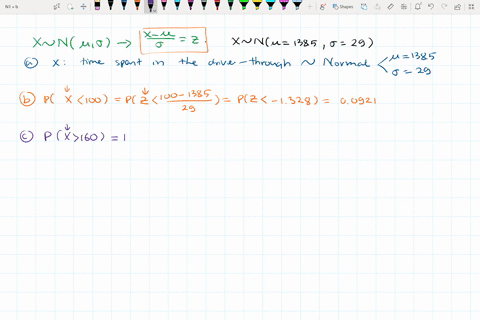 X~N(μ,σ) → x-μ/σ = Z X~N(μ=1385, σ=29)
ⓐ X: time spent in the drive-through ~ Normal < μ=1385
σ=29
ⓑ P(X<100) = P(Z< 100-1385/29) = P(Z<-1.328) = 0.0921
ⓒ P(X>160) = 1